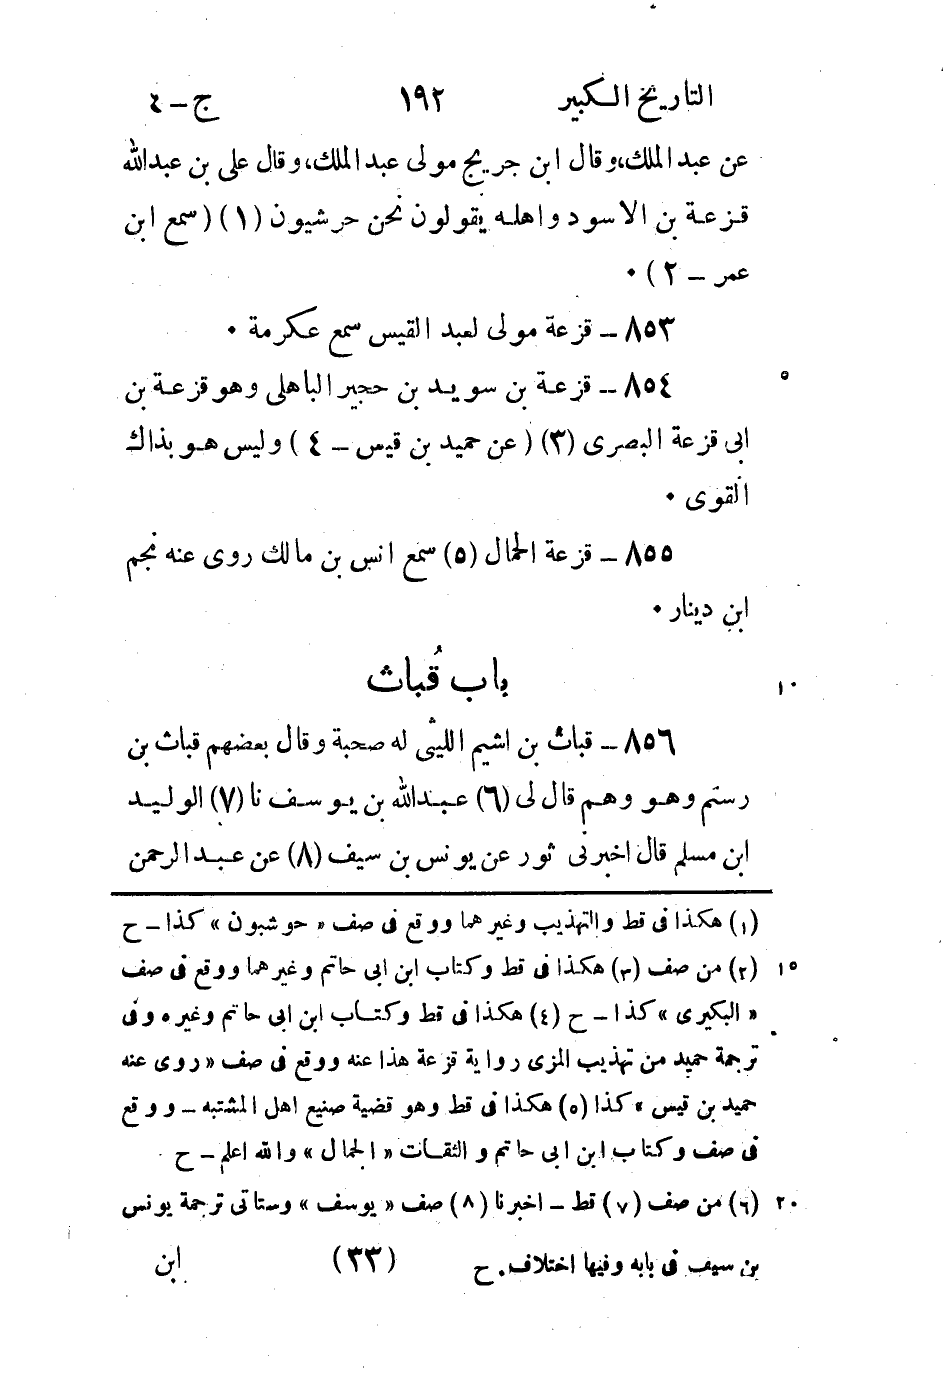 التاريخ الكبير ١٩٢ ج – ٤
عن عبد الملك، وقال ابن جريج مولى عبد الملك، وقال على بن عبدالله
قزعة بن الاسود واهله يقولون نحن حرشيون (١) (سمع ابن
عمر – ٢) ٠
٨٥٣ – قزعة مولى لعبد القيس سمع عكرمة ٠
٨٥٤ – قزعة بن سويد بن حجير الباهلى وهو قزعة بن ٥
ابى قزعة البصرى (٣) (عن حميد بن قيس – ٤) وليس هو بذاك
القوى ٠
٨٥٥ – قزعة الحمال (٥) سمع انس بن مالك روى عنه نجم
ابن دينار ٠
باب قُباث ١٠
٨٥٦ – قباث بن اشيم الليثى له صحبة وقال بعضهم قباث بن
رستم وهو وهم قال لى (٦) عبدالله بن يوسف نا (٧) الوليد
ابن مسلم قال اخبرنى ثور عن يونس بن سيف (٨) عن عبد الرحمن
(١) هكذا فى قط والتهذيب وغيرهما ووقع فى صف « حوشبون » كذا – ح
(٢) من صف (٣) هكذا فى قط وكتاب ابن ابى حاتم وغيرهما ووقع فى صف ١٥
« البكيرى » كذا – ح (٤) هكذا فى قط وكتاب ابن ابى حاتم وغيره وفى
ترجمة حميد من تهذيب المزى رواية قزعة هذا عنه ووقع فى صف « روى عنه
حميد بن قيس » كذا (٥) هكذا فى قط وهو قضية صنيع اهل المشتبه – ووقع
فى صف وكتاب ابن ابى حاتم و الثقات « الجمال » والله اعلم – ح
(٦) من صف (٧) قط – اخبرنا (٨) صف « يوسف » وستاتى ترجمة يونس ٢٠
بن سيف فى بابه وفيها اختلاف. ح (٣٣) ابن